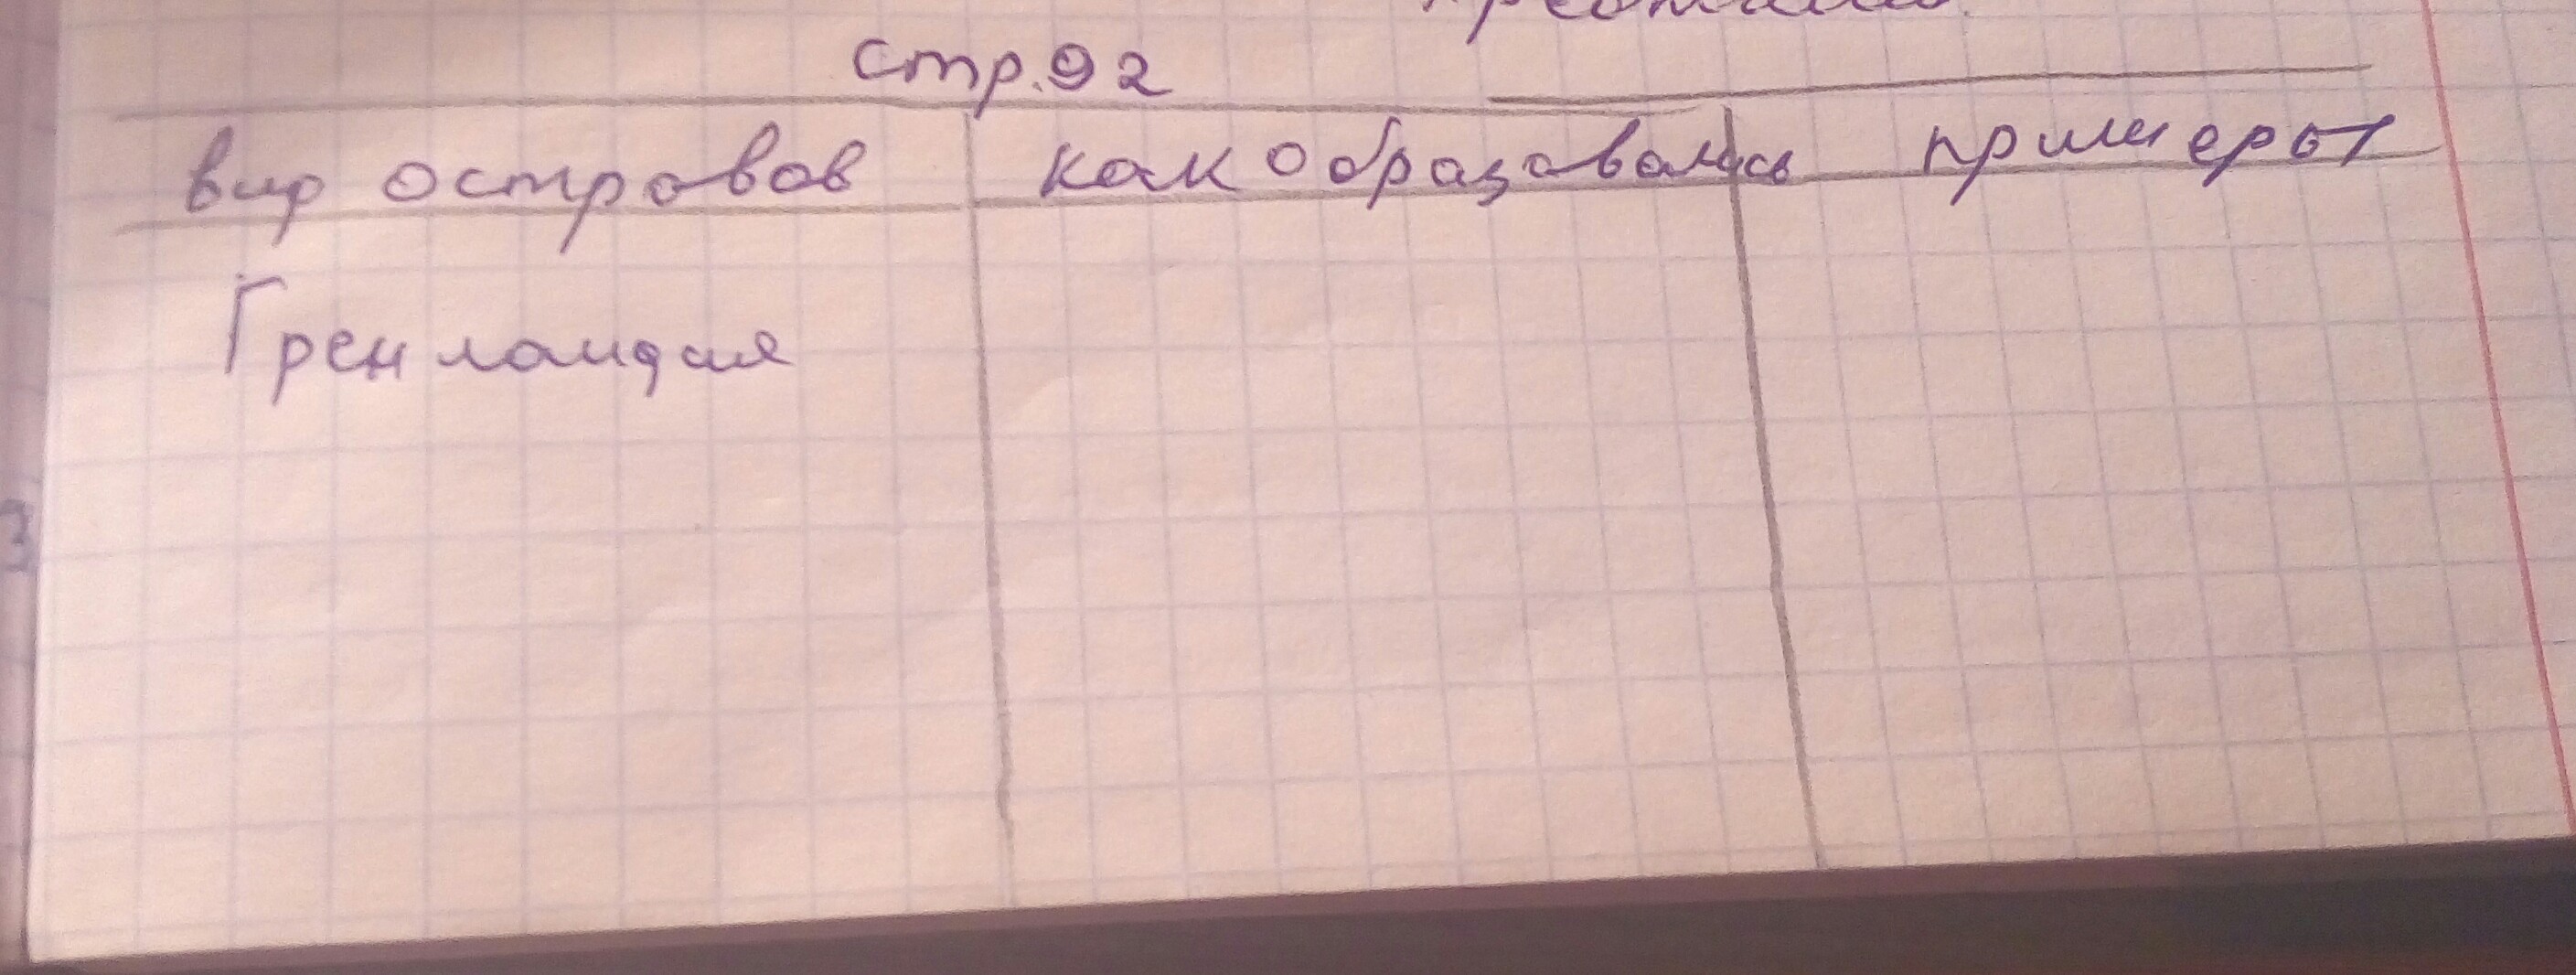 стр. 92
вид островов как образовались примеры
Гренландия
3